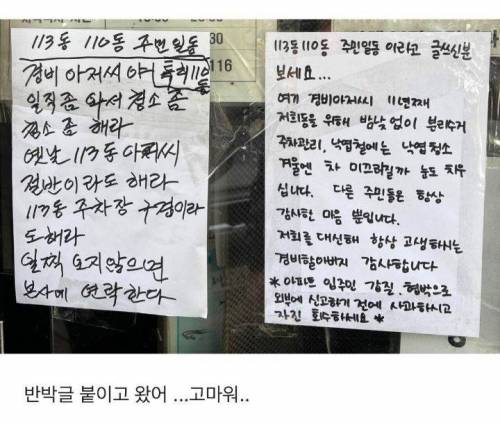 113동 110동 주민일동
경비 아저씨 야 특히110동
일직좀 와서 청소 좀
청소 좀 해라
옛날 113동 아저씨
절반이라도 해라
113동 주차장 구경이라
도해라
일찍 오지않으면
본사에 연락한다
30
116
113동110동 주민일동 이라고 글쓰신분
보세요...
여기 경비아저씨 11년째
저희동을 위해 밤낮없이 분리수거
주차관리, 낙엽철에는 낙엽청소
겨울엔 차 미끄러질까 눈도 치우
십니다. 다른 주민들은 항상
감사한 마음 뿐입니다.
저희를 대신해 항상 고생하시는
경비할아버지 감사합니다
* 아파트 입주민 갑질, 협박으로
외부에 신고하기 전에 사과하시고
자진 회수하세요 *
반박글 붙이고 왔어 ...고마워..